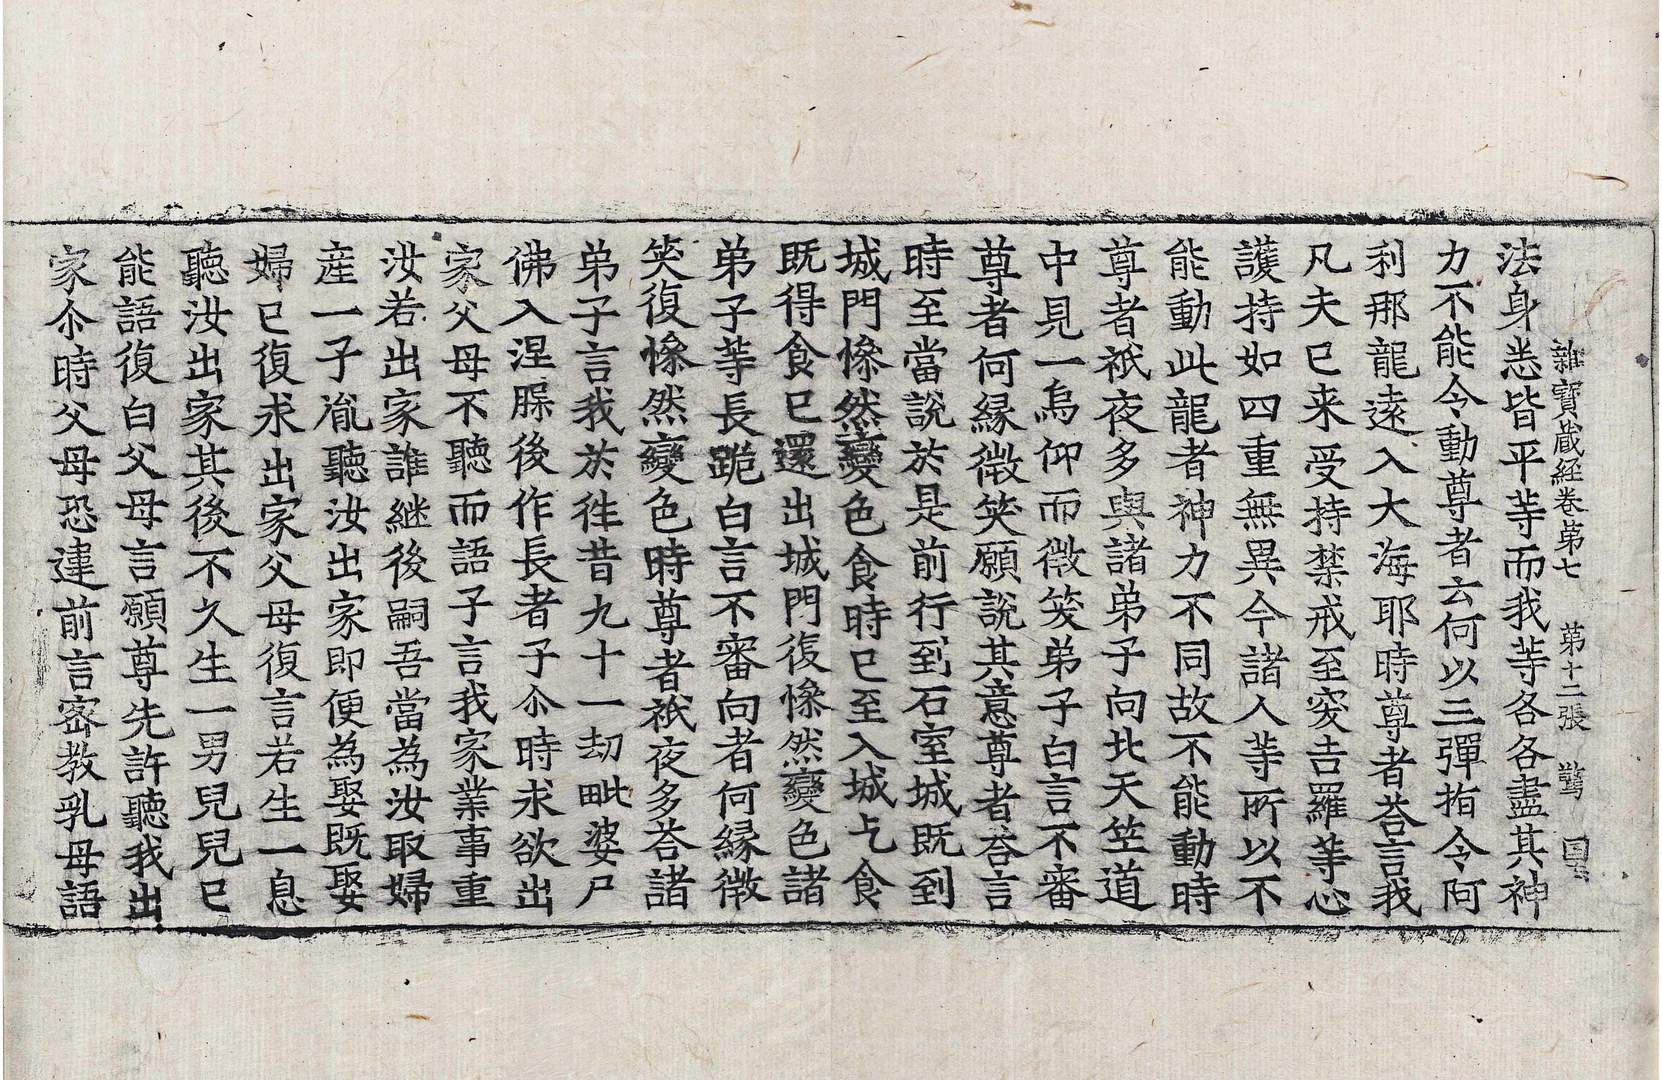 雜寶蔵経卷苐七　苐十二張　驚　国
法身悉皆平等而我等各各盡其神
力不能令動尊者云何以三彈指令阿
利那龍遠入大海耶時尊者荅言我
凡夫已来受持禁戒至突吉羅等心
護持如四重無異今諸人等所以不
能動此龍者神力不同故不能動時
尊者祇夜多與諸弟子向北天竺道
中見一烏仰而微笑弟子白言不審
尊者何縁微笑願說其意尊者荅言
時至當說於是前行到石室城既到
城門慘然變色食時已至入城乞食
既得食已還出城門復慘然變色諸
弟子等長跪白言不審向者何縁微
笑復慘然變色時尊者祇夜多荅諸
弟子言我於徃昔九十一劫毗婆尸
佛入涅槃後作長者子尒時求欲出
家父母不聽而語子言我家業事重
汝若出家誰継後嗣吾當為汝取婦
産一子胤聽汝出家即便為娶既娶
婦已復求出家父母復言若生一息
聽汝出家其後不久生一男兒兒已
能語復白父母言願尊先許聽我出
家尒時父母恐違前言密教乳母語